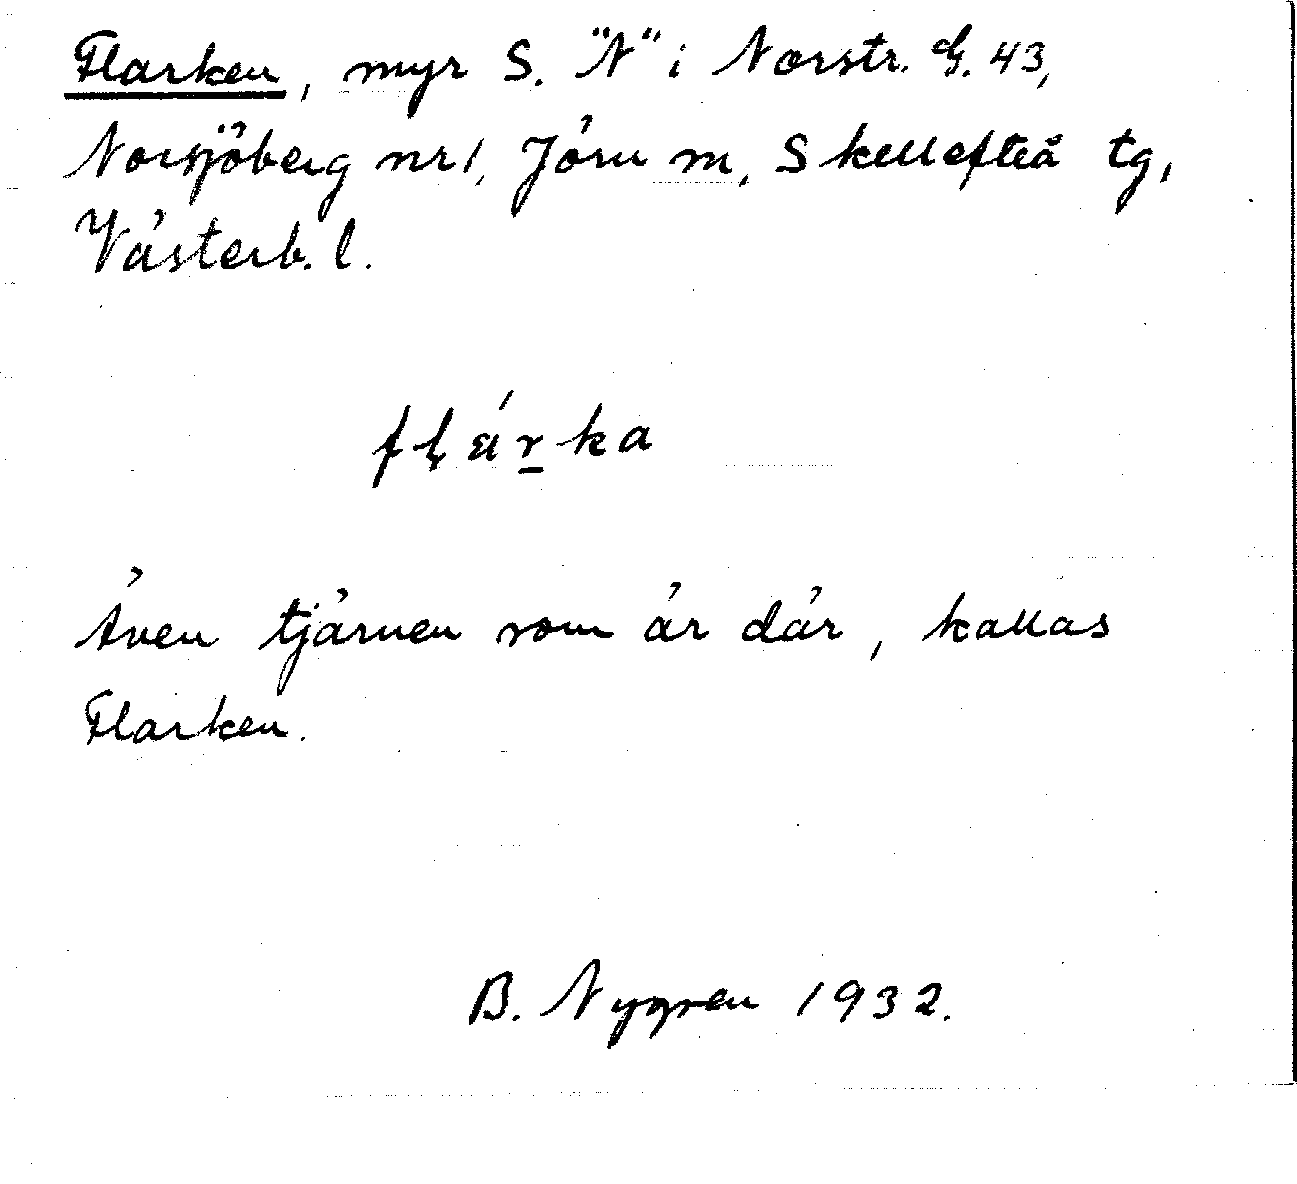 Flarken, myr S. "N" i Norstr. G. 43,
Norsjöberg nr 1, Jörn m, Skellefteå tg,
Västerb. l.
flárka
Även tjärnen som är där, kallas
Flarken.
B. Nygren 1932.